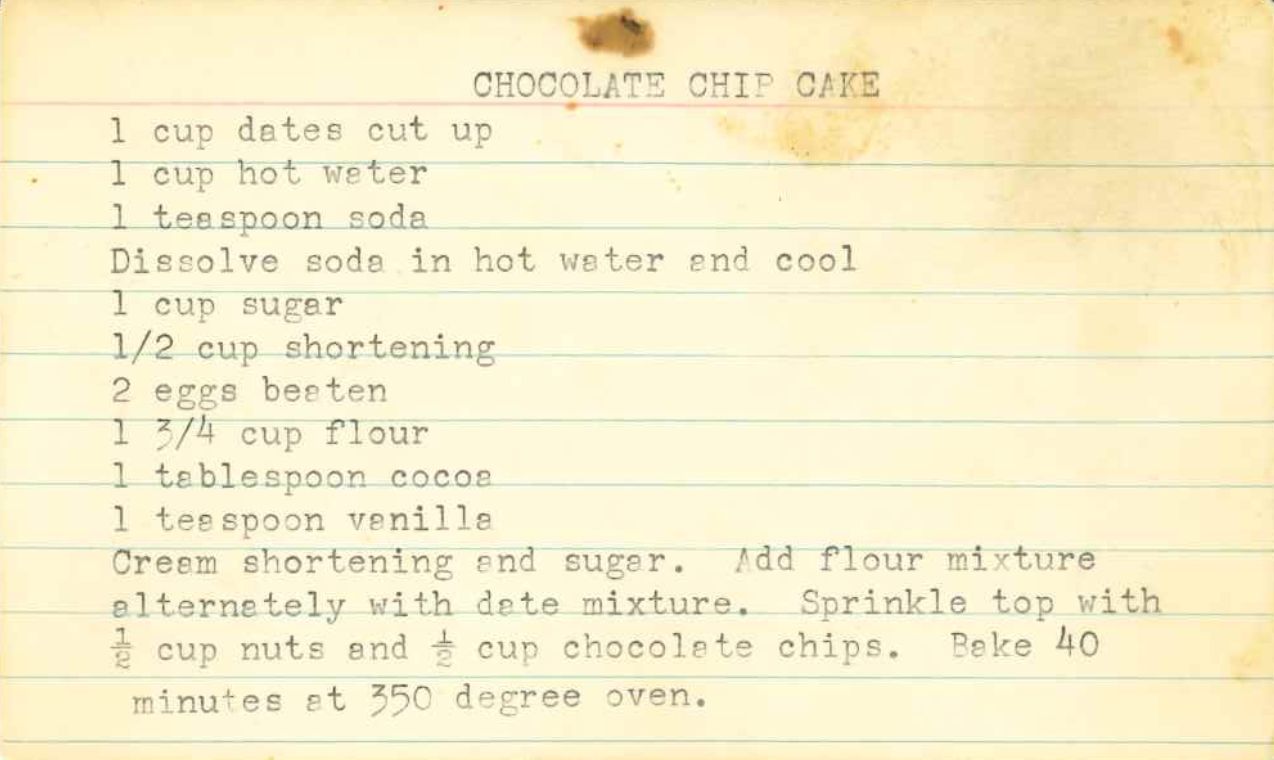 CHOCOLATE CHIP CAKE
1 cup dates cut up
1 cup hot water
1 teaspoon soda
Dissolve soda in hot water and cool
1 cup sugar
1/2 cup shortening
2 eggs beaten
1 3/4 cup flour
1 tablespoon cocoa
1 teaspoon vanilla
Cream shortening and sugar. Add flour mixture
alternately with date mixture. Sprinkle top with
½ cup nuts and ½ cup chocolate chips. Bake 40
minutes at 350 degree oven.